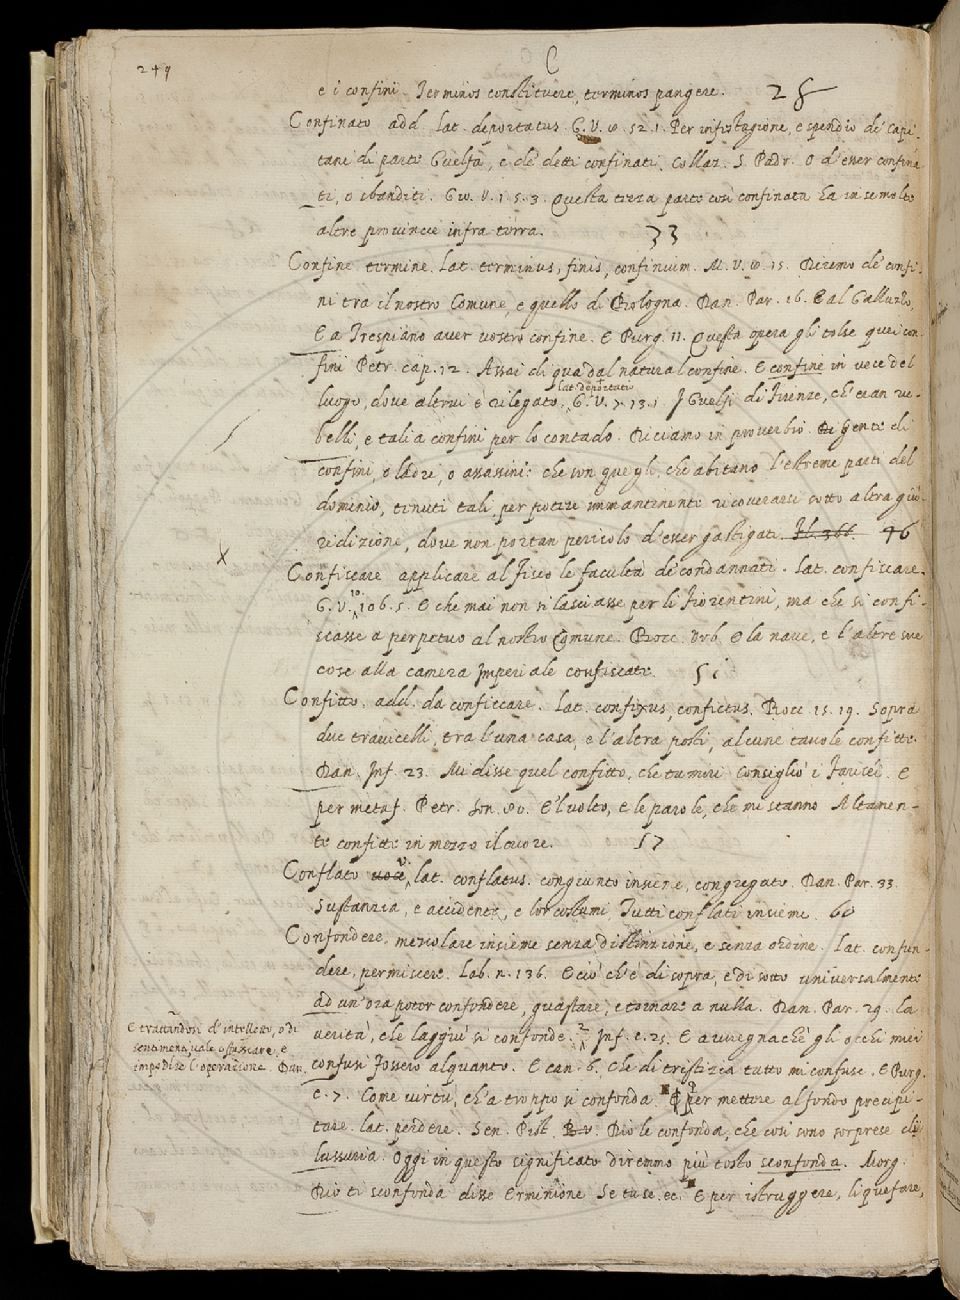 249
C
e i confini. Terminos constituere, terminos pangere. 28
Confinato add. lat. deportatus G.V. 8. 52. 1. Per infestagione, e spendio de' capi-
tani di parte Guelfa, e de' detti confinati. Collaz. S. Padr. O d'esser confina
ti, o sbanditi. Gio. V. 1. 5. 3. Questa terza parte così confinata ha in se molte
altre provincie infra terra. 33
Confine termine. Lat. terminus, finis, confinium. M.V. 8. 15. Diremo de' confi-
ni tra il nostro Comune, e quello di Bologna. Dan. Par. 16. E al Galluzzo,
E a Trespiano aver vostro confine. E Purg. 11. Questa opera gli tolse quei con
fini Petr. cap. 12. Assai di qua dal natural confine. E confine in vece del
lat. deportatio
luogo, dove altrui è rilegato. G.V. 7. 13. 1 I Guelfi di Firenze, ch'eran ru-
belli, e tali a confini per lo contado. Diciamo in proverbio. Gente di
confini, o ladri, o assassini: che son quegli, che abitano l'estreme parti del
dominio, tenuti tali, per potere immantinente ricoverarsi sotto altra giu-
ridizione, dove non portan pericolo d'esser gastigati. Fl. 366. 46
Confiscare applicare al fisco le facultà de' condannati. Lat. confiscare.
G.V. 10. 106. 5. E che mai non si lasciasse per li Fiorentini, ma che si confi-
scasse a perpetuo al nostro Comune. Bocc. Urb. E la nave, e l'altre sue
cose alla camera Imperiale confiscate. 51
Confitto. add. da conficcare. Lat. confixus, confictus. Bocc. 15. 19. Sopra
due travicelli, tra l'una casa, e l'altra posti, alcune tavole confitte.
Dan. Inf. 23. Mi disse quel confitto, che tu miri Consigliò i Farisei. E
per metaf. Petr. Son. 80. E'l volto, e le parole, che mi stanno Altamen-
te confitte in mezzo il cuore. 57
Conflato voce V. lat. conflatus. congiunto insieme, congregato. Dan. Par. 33
Sustanzia, e accidente, e lor costumi, Tutti conflati insieme. 60
Confondere. mescolare insieme senza distinzione, e senza ordine. Lat. confun-
dere, permiscere. Lab. n. 136. E ciò ch'è di sopra, e di sotto universalmente
ad un'ora poter confondere, guastare, e tornare a nulla. Dan. Par. 29. La
verità, che laggiù si confonde. Inf. c. 25. E avvegnachè gli occhi miei
E trattandosi d'intelletto, o di
sentimenti, vale offuscare, e
impedire l'operazione. Dan.
confusi Fossero alquanto. E can. 6. Che di tristizia tutto mi confuse. E Purg.
c. 7. Come virtù, ch'a troppo si confonda. per mettere al fondo precipi-
tare. lat. perdere. Sen. Pist. B.V. Dio le confonda, che così sono sorprese di
lussuria. Oggi in questo significato diremmo più tosto sconfonda. Morg.
Dio ti sconfonda disse Erminione Se tu se. ec. E per istruggere, liquefare,